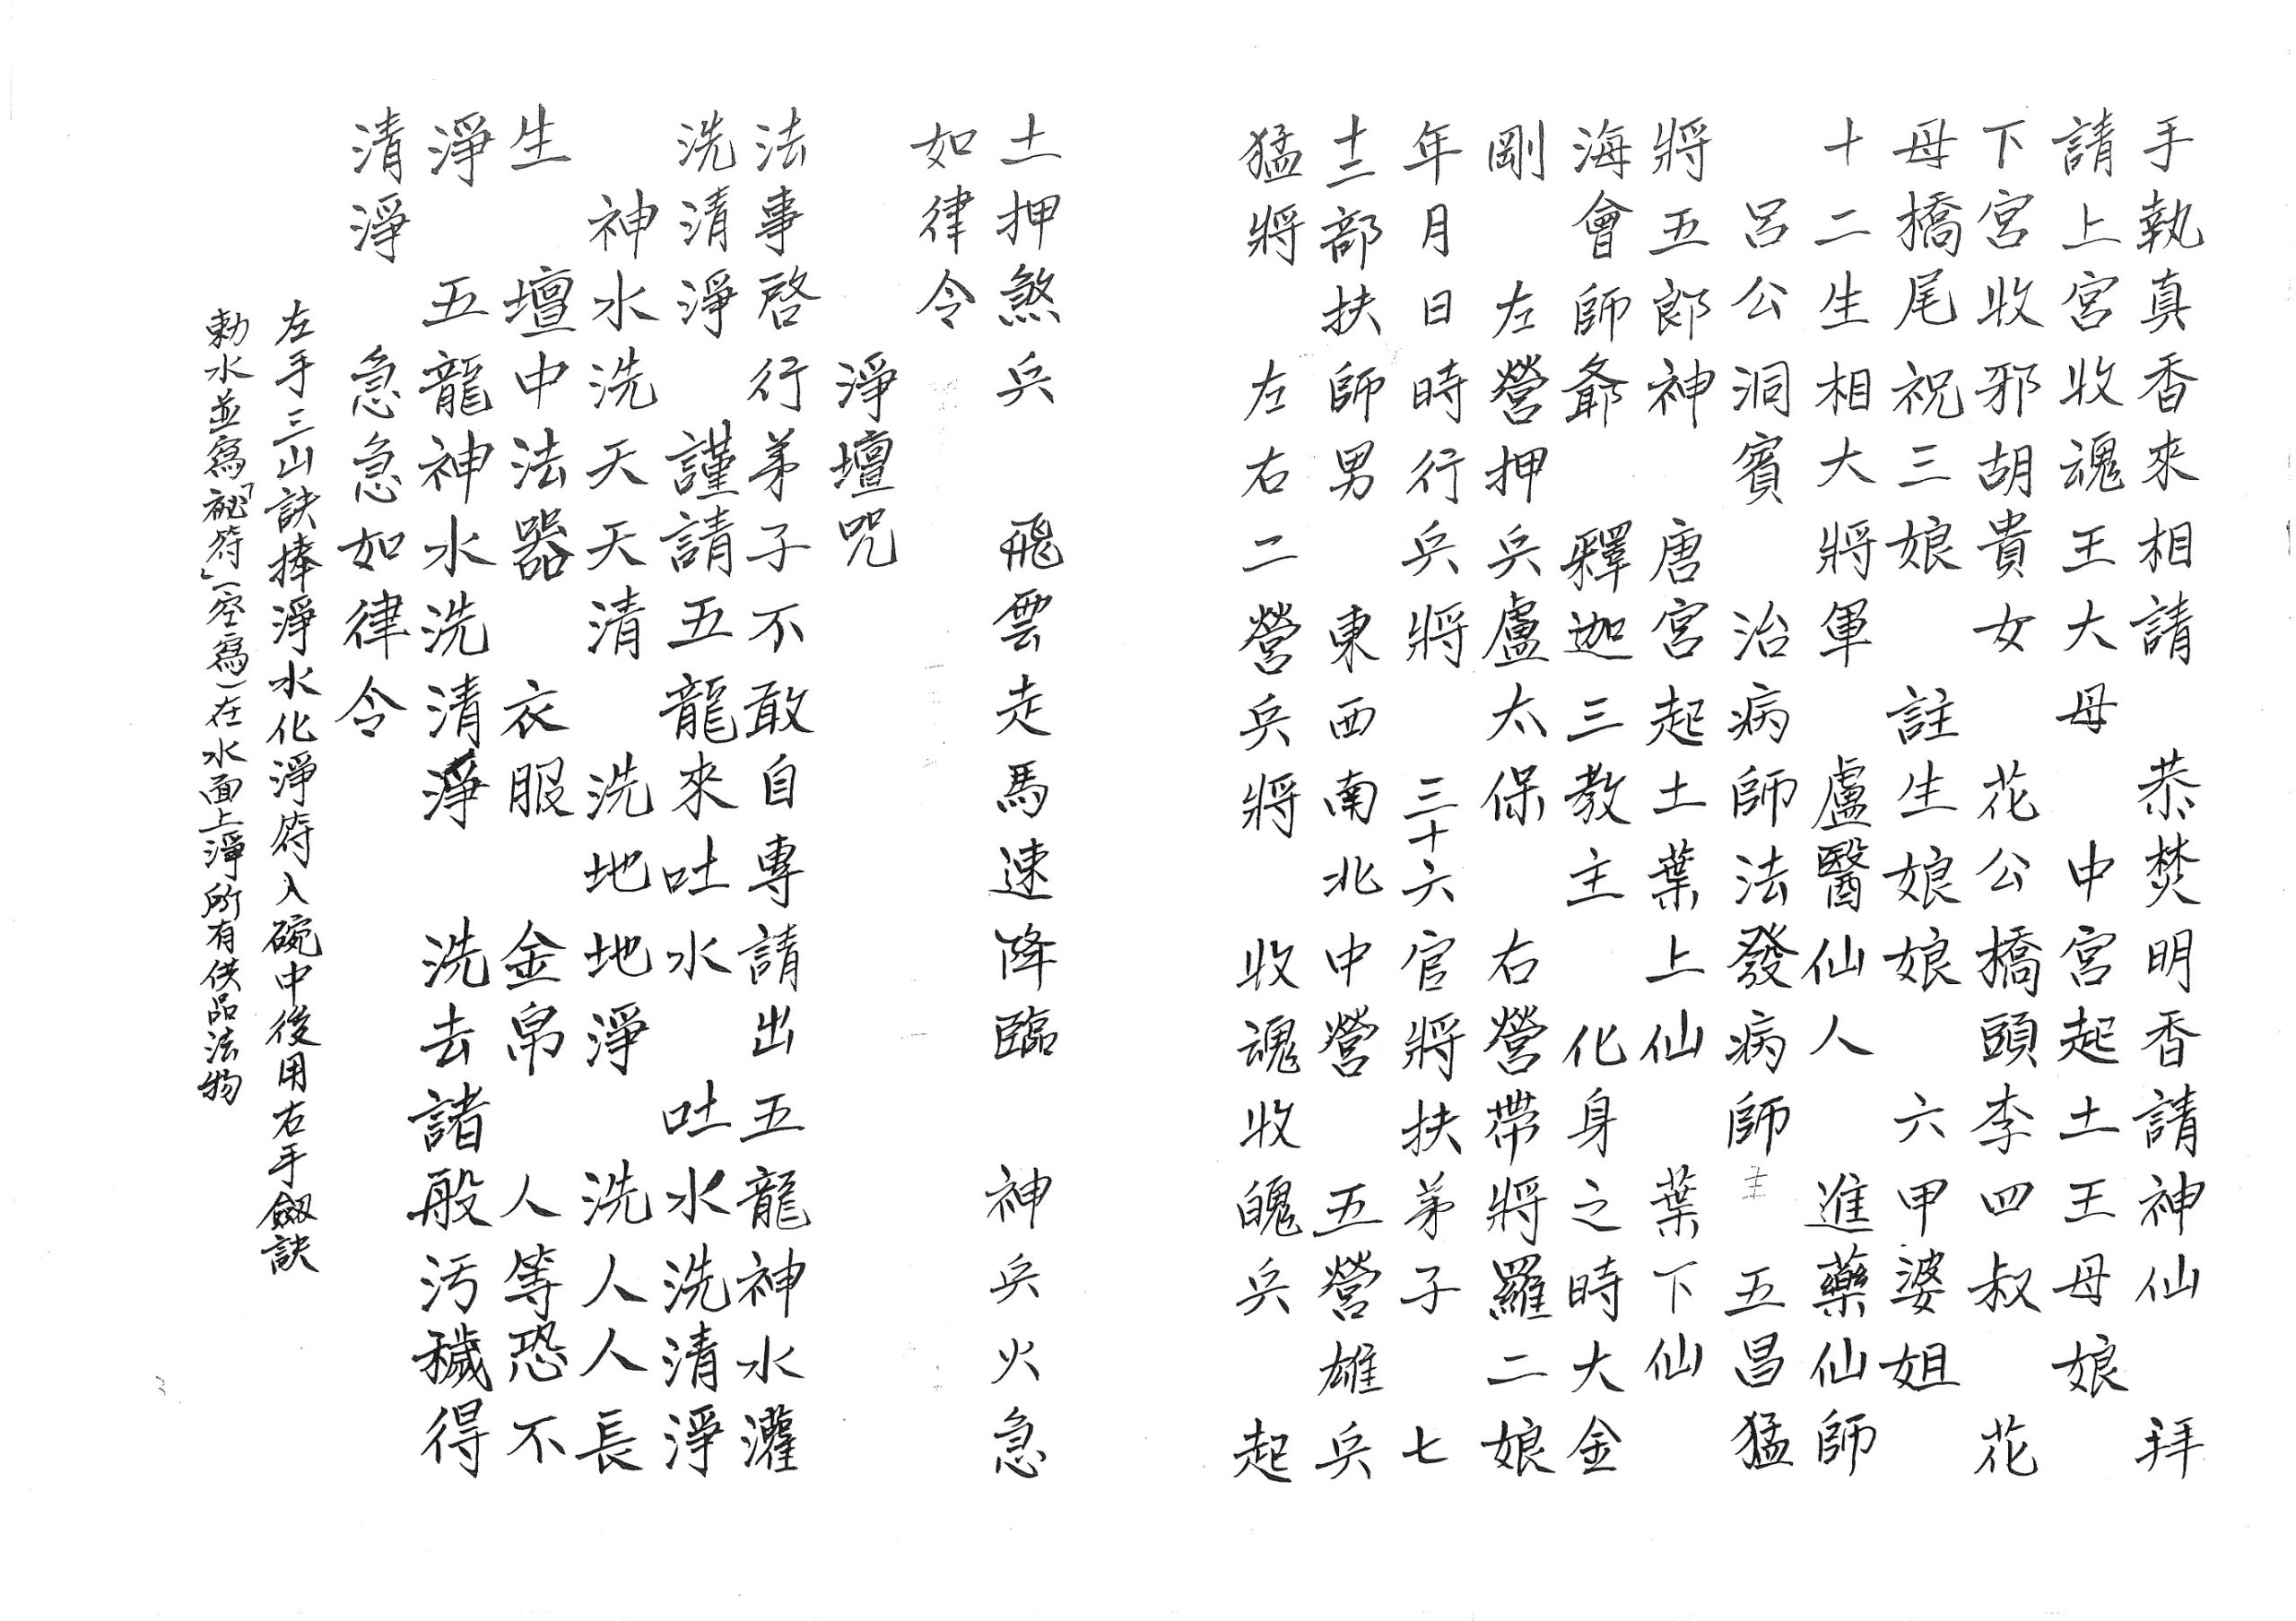 手執真香來相請　恭焚明香請神仙　拜
請上宮收魂王大母　中宮起土王母娘
下宮收邪胡貴女　花公橋頭李四叔　花
母橋尾祝三娘　註生娘娘　六甲婆姐
十二生相大將軍　盧醫仙人　進藥仙師
呂公洞賓　治病師法發病師　五昌猛
將五郎神　唐宮起土葉上仙　葉下仙
海會師爺　釋迦三教主　化身之時大金
剛　左營押兵盧太保　右營帶將羅二娘
年月日時行兵將　三十六官將扶弟子　七
十二部扶師男　東西南北中營　五營雄兵
猛將　左右二營兵將　收魂收魄兵　起
土押煞兵　飛雲走馬速降臨　神兵火急
如律令
淨壇咒
法事啓行弟子不敢自專請出五龍神水灌
洗清淨　謹請五龍來吐水　吐水洗清淨
神水洗天天清　洗地地淨　洗人人長
生　壇中法器　衣服　金帛　人等恐不
淨　五龍神水洗清淨　洗去諸般污穢得
清淨　急急如律令
左手三山訣捧淨水化淨符入碗中後用右手劔訣
勅水並寫「祕符」（空寫）在水面上淨所有供品法物